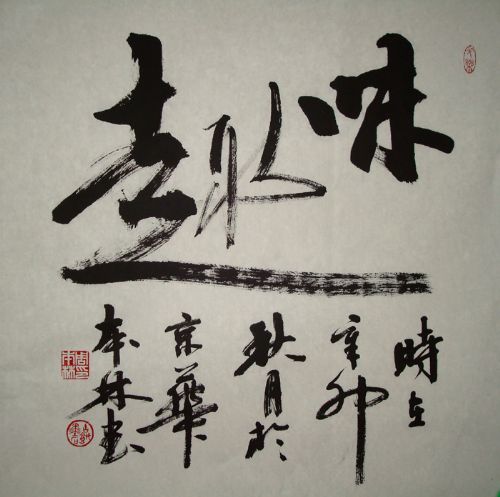 味趣
時在
辛卯
秋月於
京華
本林書